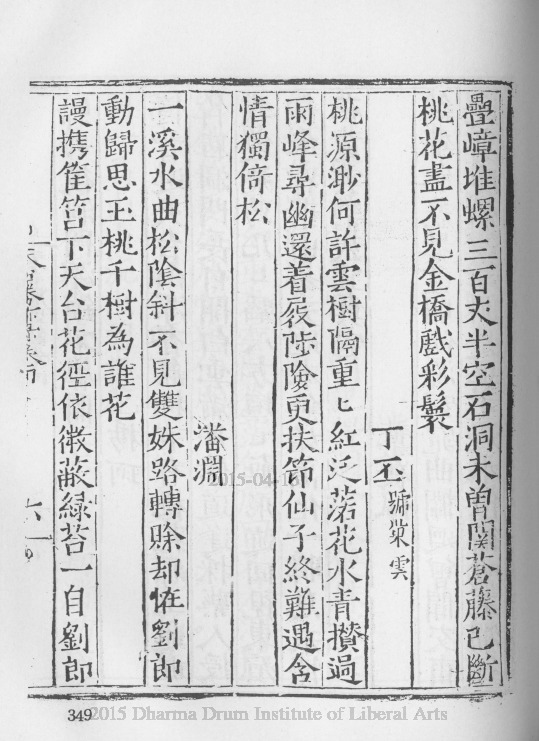 疊嶂堆螺三百丈半空石洞未曾關蒼藤已斷
桃花盡不見金橋戲彩鬟
丁丕號巢雲
桃源渺何許雲樹隔重匕紅泛落花水青攅過
雨峰尋幽還着屐陟險更扶筇仙子終難遇含
情獨倚松
潘澗
一溪水曲松陰斜不見雙姝路轉賒却怪劉郎
動歸思玉桃千樹為誰花
謾携筐筥下天台花徑依微蔽綠苔一自劉郎
349
2015-04-16
2015 Dharma Drum Institute of Liberal Arts